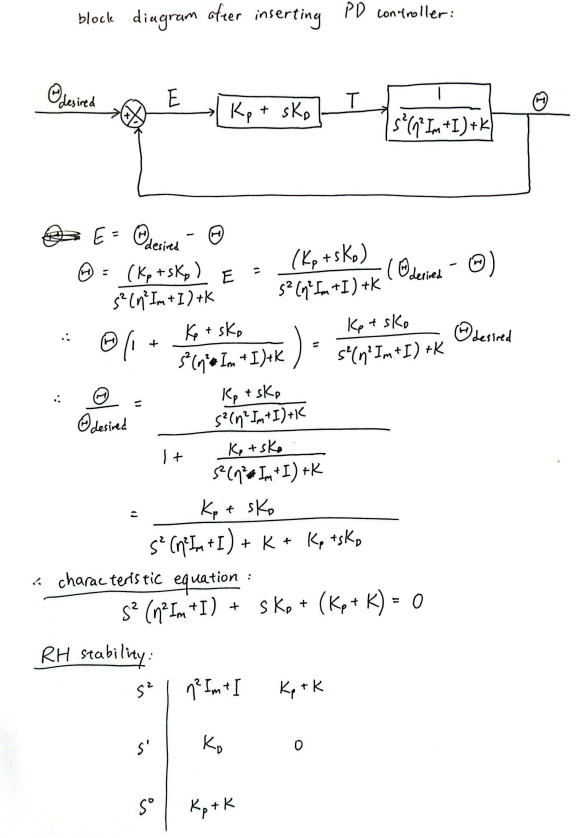 block diagram after inserting PD controller:
Θdesired + - E Kp + sKD T 1 / s²(η²Im+I)+K Θ
E = Θdesired - Θ
Θ = (Kp+sKD) / s²(η²Im+I)+K E = (Kp+sKD) / s²(η²Im+I)+K (Θdesired - Θ)
∴ Θ (1 + Kp + sKD / s²(η² Im+I)+K) = Kp + sKD / s²(η²Im+I)+K Θdesired
∴ Θ / Θdesired = Kp + sKD / s²(η²Im+I)+K / 1 + Kp + sKD / s²(η² Im+I)+K
= Kp + sKD / s²(η²Im+I) + K + Kp +sKD
∴ characteristic equation:
s²(η²Im+I) + sKD + (Kp+K) = 0
RH stability:
s² | η²Im+I Kp+K
s¹ | KD 0
s⁰ | Kp+K